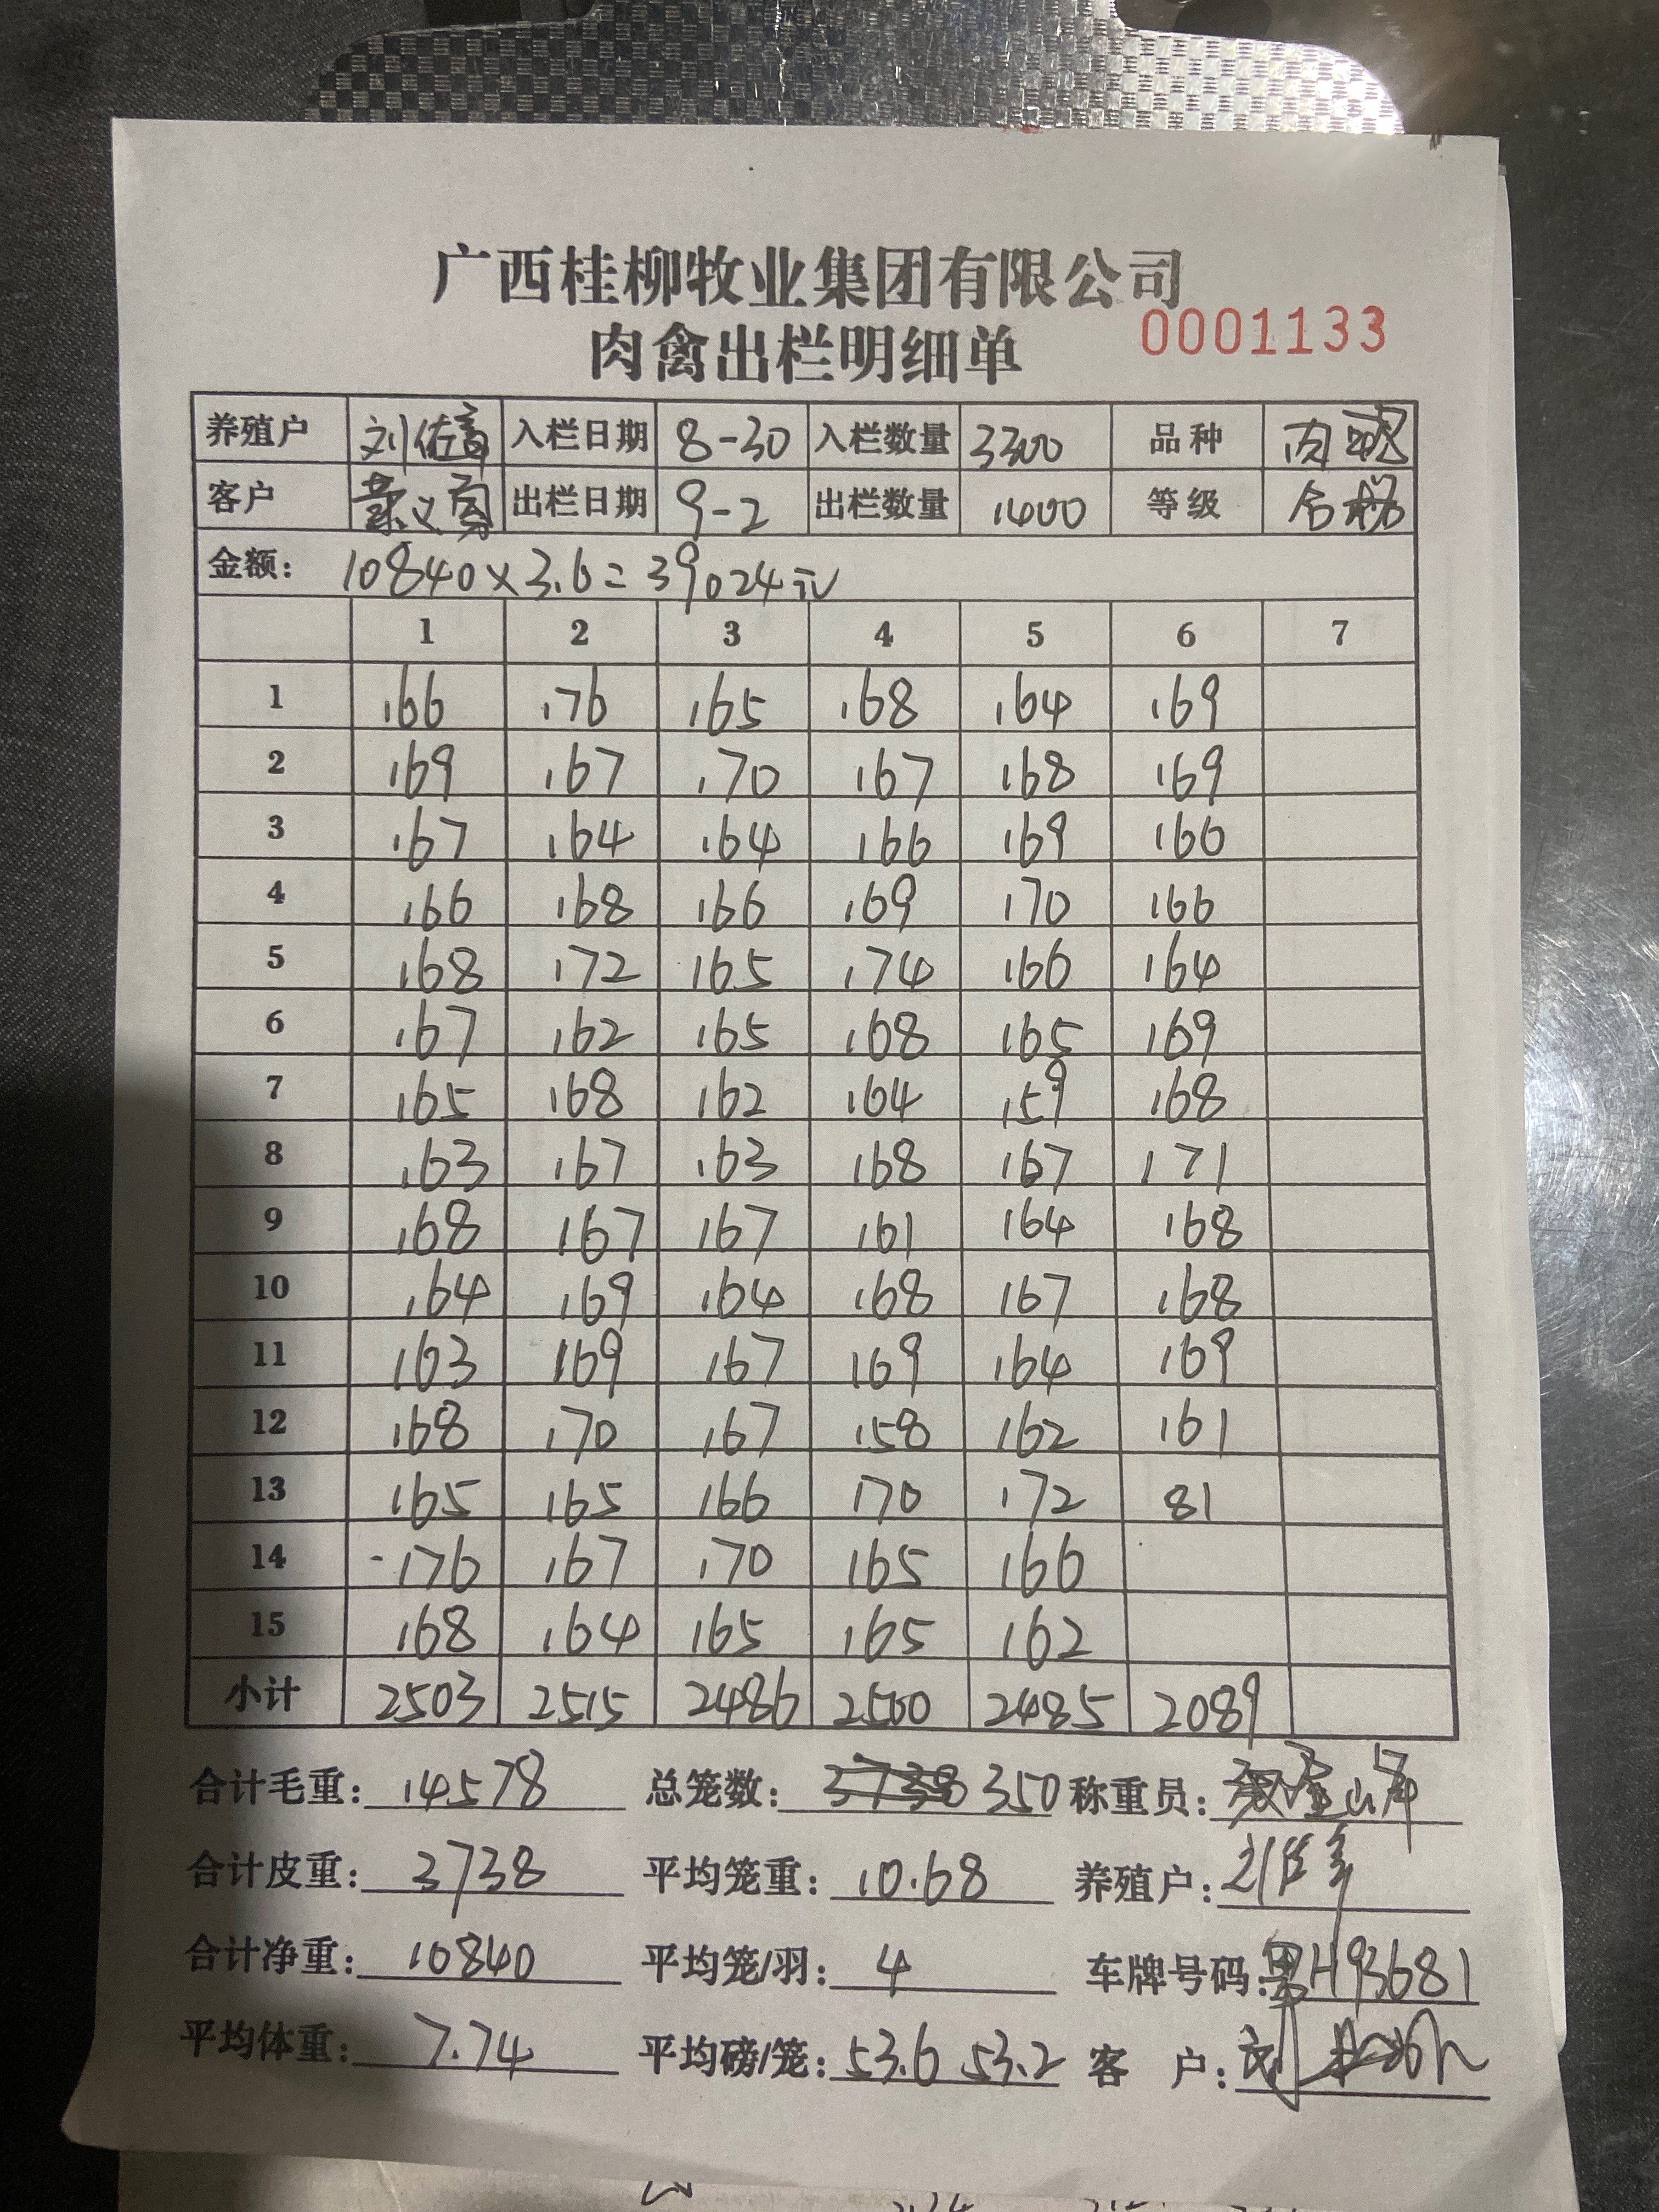 广西桂柳牧业集团有限公司
肉禽出栏明细单 0001133
养殖户 刘佐 入栏日期 8-30 入栏数量 3300 品种 肉
客户 义 出栏日期 9-2 出栏数量 1400 等级 合格
金额: 10840×3.6=39024元
1 2 3 4 5 6 7
1 166 176 165 168 164 169
2 169 167 170 167 168 169
3 167 164 164 166 169 166
4 166 168 166 169 170 166
5 168 172 165 174 166 164
6 167 162 165 168 165 169
7 165 168 162 164 159 168
8 163 167 163 168 167 171
9 168 167 167 161 164 168
10 164 169 164 168 167 168
11 163 169 167 169 164 169
12 168 170 167 158 162 161
13 165 165 166 170 172 81
14 176 167 170 165 166
15 168 164 165 165 162
小计 2503 2515 2486 2500 2485 2089
合计毛重: 14578 总笼数: 350 称重员:
合计皮重: 3738 平均笼重: 10.68 养殖户:
合计净重: 10840 平均笼/羽: 4 车牌号码: H93681
平均体重: 7.74 平均磅/笼: 53.6 53.2 客户: 刘